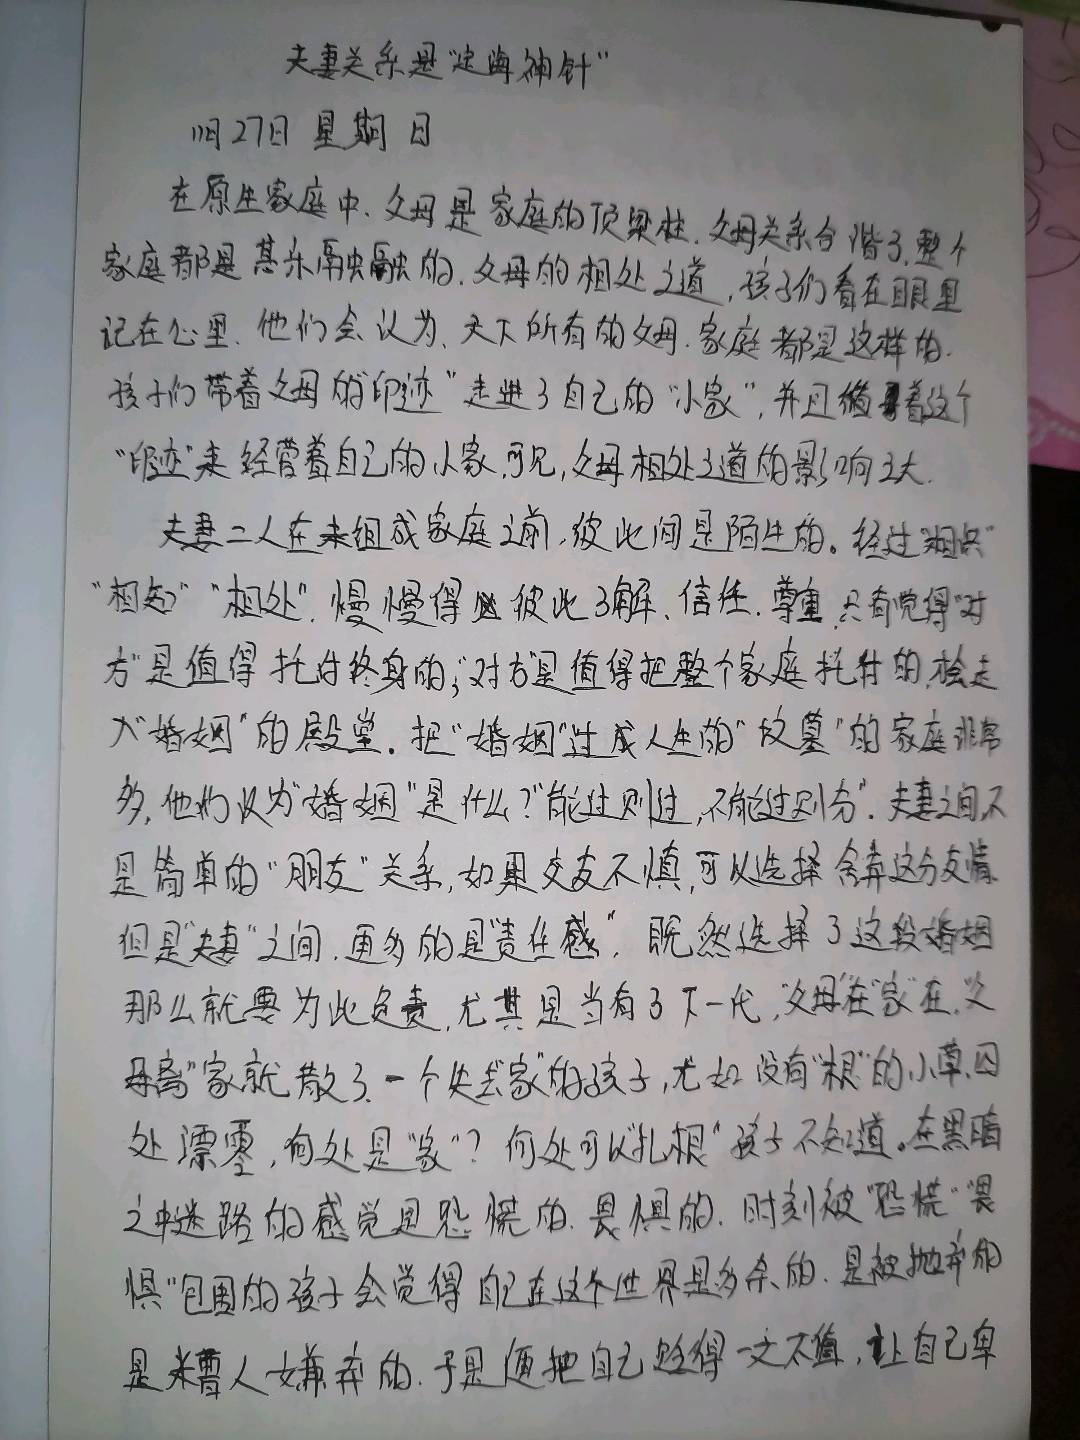 夫妻关系是“定海神针”
11月27日 星期日
在原生家庭中、父母是家庭的顶梁柱、父母关系合谐了、整个
家庭都是其乐融融的、父母的相处之道，孩子们看在眼里
记在心里、他们会认为、天下所有的父母、家庭都是这样的、
孩子们带着父母的“印迹”走进了自己的“小家”，并且循着这个
“印迹”来经营着自己的小家、可见，父母相处之道的影响之大.
夫妻二人在未组成家庭之前，彼此间是陌生的。经过“相识”
“相知”“相处”，慢慢得 彼此了解、信任、尊重，只有觉得“对
方”是值得托付终身的；“对方”是值得把整个家庭托付的、会走
入“婚姻”的殿堂。把“婚姻”过成人生的“坟墓”的家庭非常
多，他们认为“婚姻”是什么？“能过则过，不能过则分”．夫妻之间，不
是简单的“朋友”关系，如果交友不慎，可以选择舍弃这分友情
但是“夫妻”之间、更多的是“责任感”．既然选择了这段婚姻
那么就要为此负责，尤其是当有了下一代，“父母”在“家”在，“父
母离”家就散了、一个失去“家”的孩子，尤如没有“根”的小草、四
处漂零，何处是“家”？何处可以“扎根”孩子不知道。在黑暗
之中迷路的感觉是恐慌的、畏惧的．时刻被“恐慌”“畏
惧”包围的孩子会觉得自己在这个世界是多余的、是被抛弃的
是遭人嫌弃的．于是便把自己贬得一文不值，让自己卑